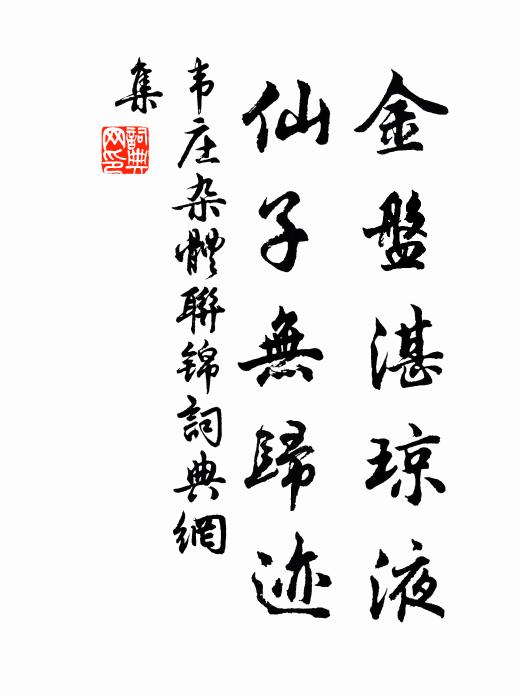 金盤湛琼液
仙子無歸迹
韦庄杂體聯锦詞典網
集
詞典网印